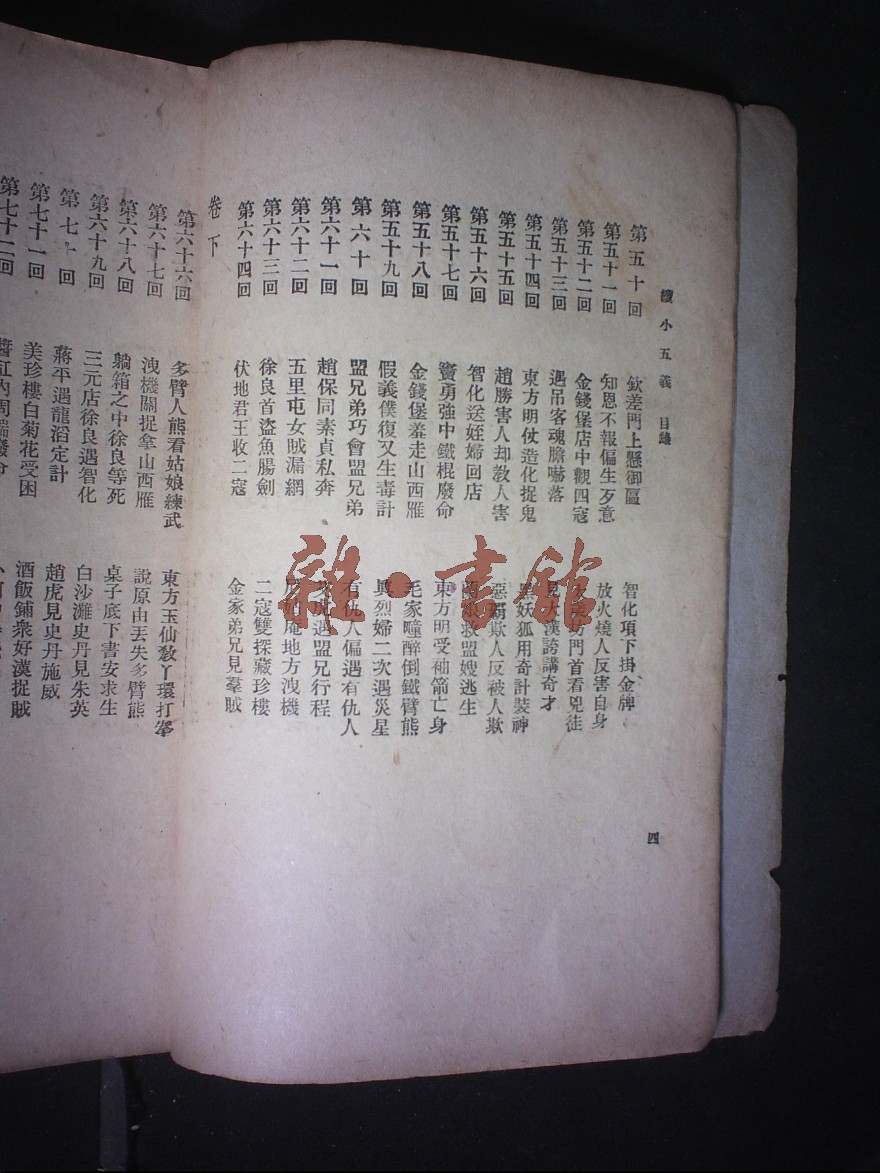 續小五義 目錄
四
第五十回 欽差門上懸御匾 智化項下掛金牌
第五十一回 知恩不報偏生歹意 放火燒人反害自身
第五十二回 金錢堡店中觀四寇 門首看兇徒
第五十三回 遇吊客魂膽嚇落 大漢誇講奇才
第五十四回 東方明仗造化捉鬼 黑妖狐用奇計裝神
第五十五回 趙勝害人却救人害 惡霸欺人反被人欺
第五十六回 智化送姪婦回店 救盟嫂逃生
第五十七回 竇勇強中鐵棍廢命 東方明受袖箭亡身
第五十八回 金錢堡羞走山西雁 毛家疃醉倒鐵臂熊
第五十九回 假義僕復又生毒計 真烈婦二次遇災星
第六十回 盟兄弟巧會盟兄弟 有仇人偏遇有仇人
第六十一回 趙保同素貞私奔 虎遇盟兄行程
第六十二回 五里屯女賊漏網 尼姑庵地方洩機
第六十三回 徐良首盜魚腸劍 二寇雙探藏珍樓
第六十四回 伏地君王收二寇 金家弟兄見羣賊
卷下
第六十六回 多臂人熊看姑娘練武 東方玉仙教丫環打拳
第六十七回 洩機關捉拿山西雁 說原由丟失多臂熊
第六十八回 躺箱之中徐良等死 桌子底下書安求生
第六十九回 三元店徐良遇智化 白沙灘史丹見朱英
第七十回 蔣平遇龍滔定計 趙虎見史丹施威
第七十一回 美珍樓白菊花受困 酒飯鋪衆好漢捉賊
第七十二回 醬缸內周瑞廢命
雜·書館